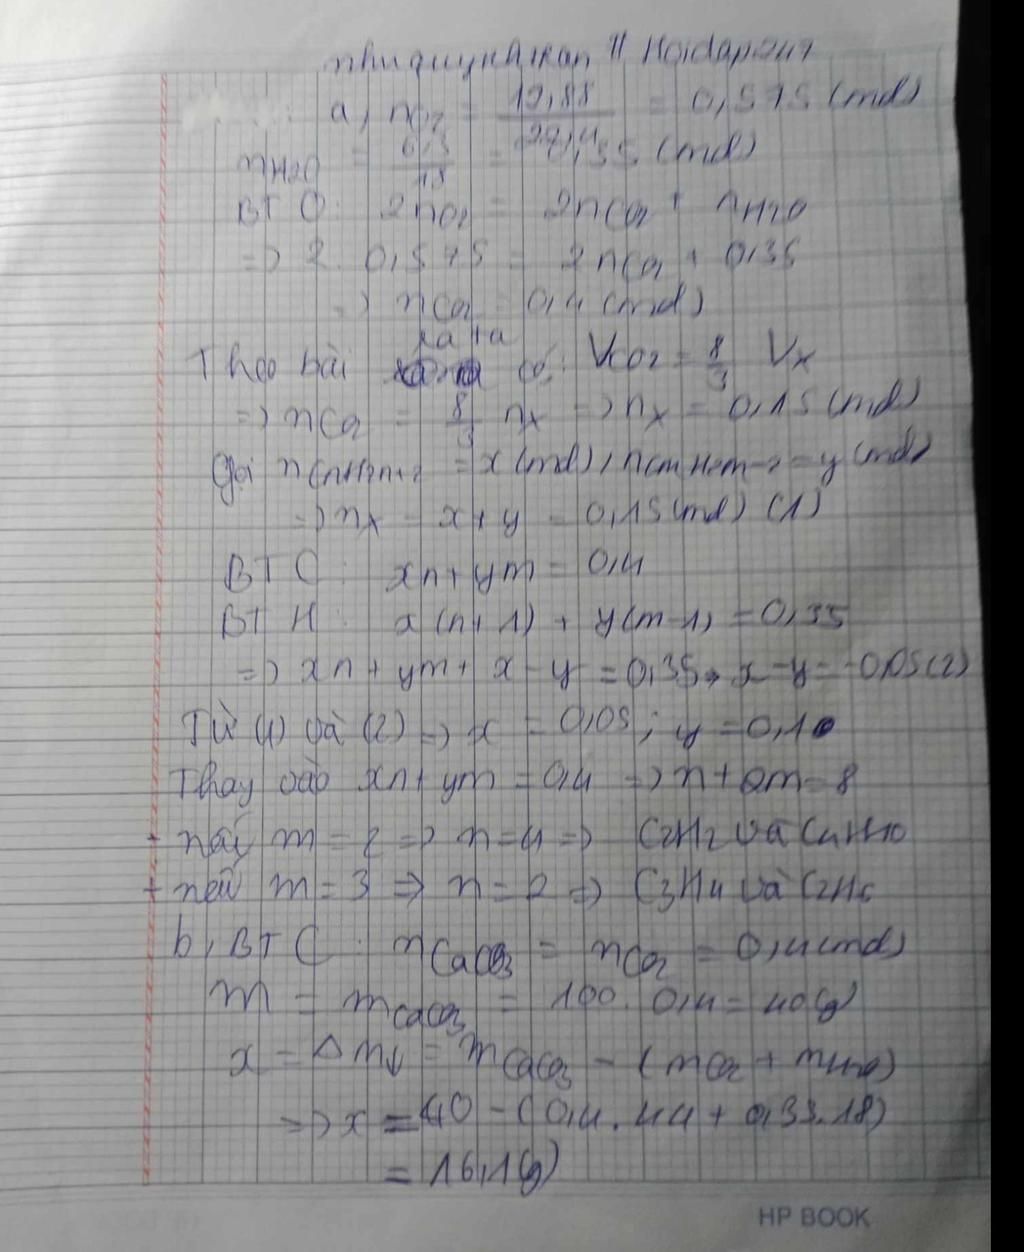 nhuquynhkan || Hoidap247
a, nO2 = 12,88 / 22,4 = 0,575 (mol)
nH2O = 6,3 / 18 = 0,35 (mol)
BT O: 2nO2 = 2nCO2 + nH2O
=> 2. 0,575 = 2nCO2 + 0,35
=> nCO2 = 0,4 (mol)
Theo bài ra ta có: VCO2 = 8/3 Vx
=> nCO2 = 8/3 nx => nx = 0,15 (mol)
Gọi nCnH2n+2 = x (mol), nCmH2m-2 = y (mol)
=> nx = x + y = 0,15 (mol) (1)
BT C: xn + ym = 0,4
BT H: x(n+1) + y(m-1) = 0,35
=> xn + ym + x - y = 0,35 → x - y = -0,05 (2)
Từ (1) và (2) => x = 0,05; y = 0,10
Thay vào xn + ym = 0,4 => n + 2m = 8
+ nếu m = 2 => n = 4 => C2H2 và C4H10
+ nếu m = 3 => n = 2 => C3H4 và C2H6
b, BT C: nCaCO3 = nCO2 = 0,4 (mol)
m = mCaCO3 = 100. 0,4 = 40 (g)
x = Δm↓ = mCaCO3 - (mCO2 + mH2O)
=> x = 40 - (0,4. 44 + 0,35.18)
= 16,1 (g)
HP BOOK